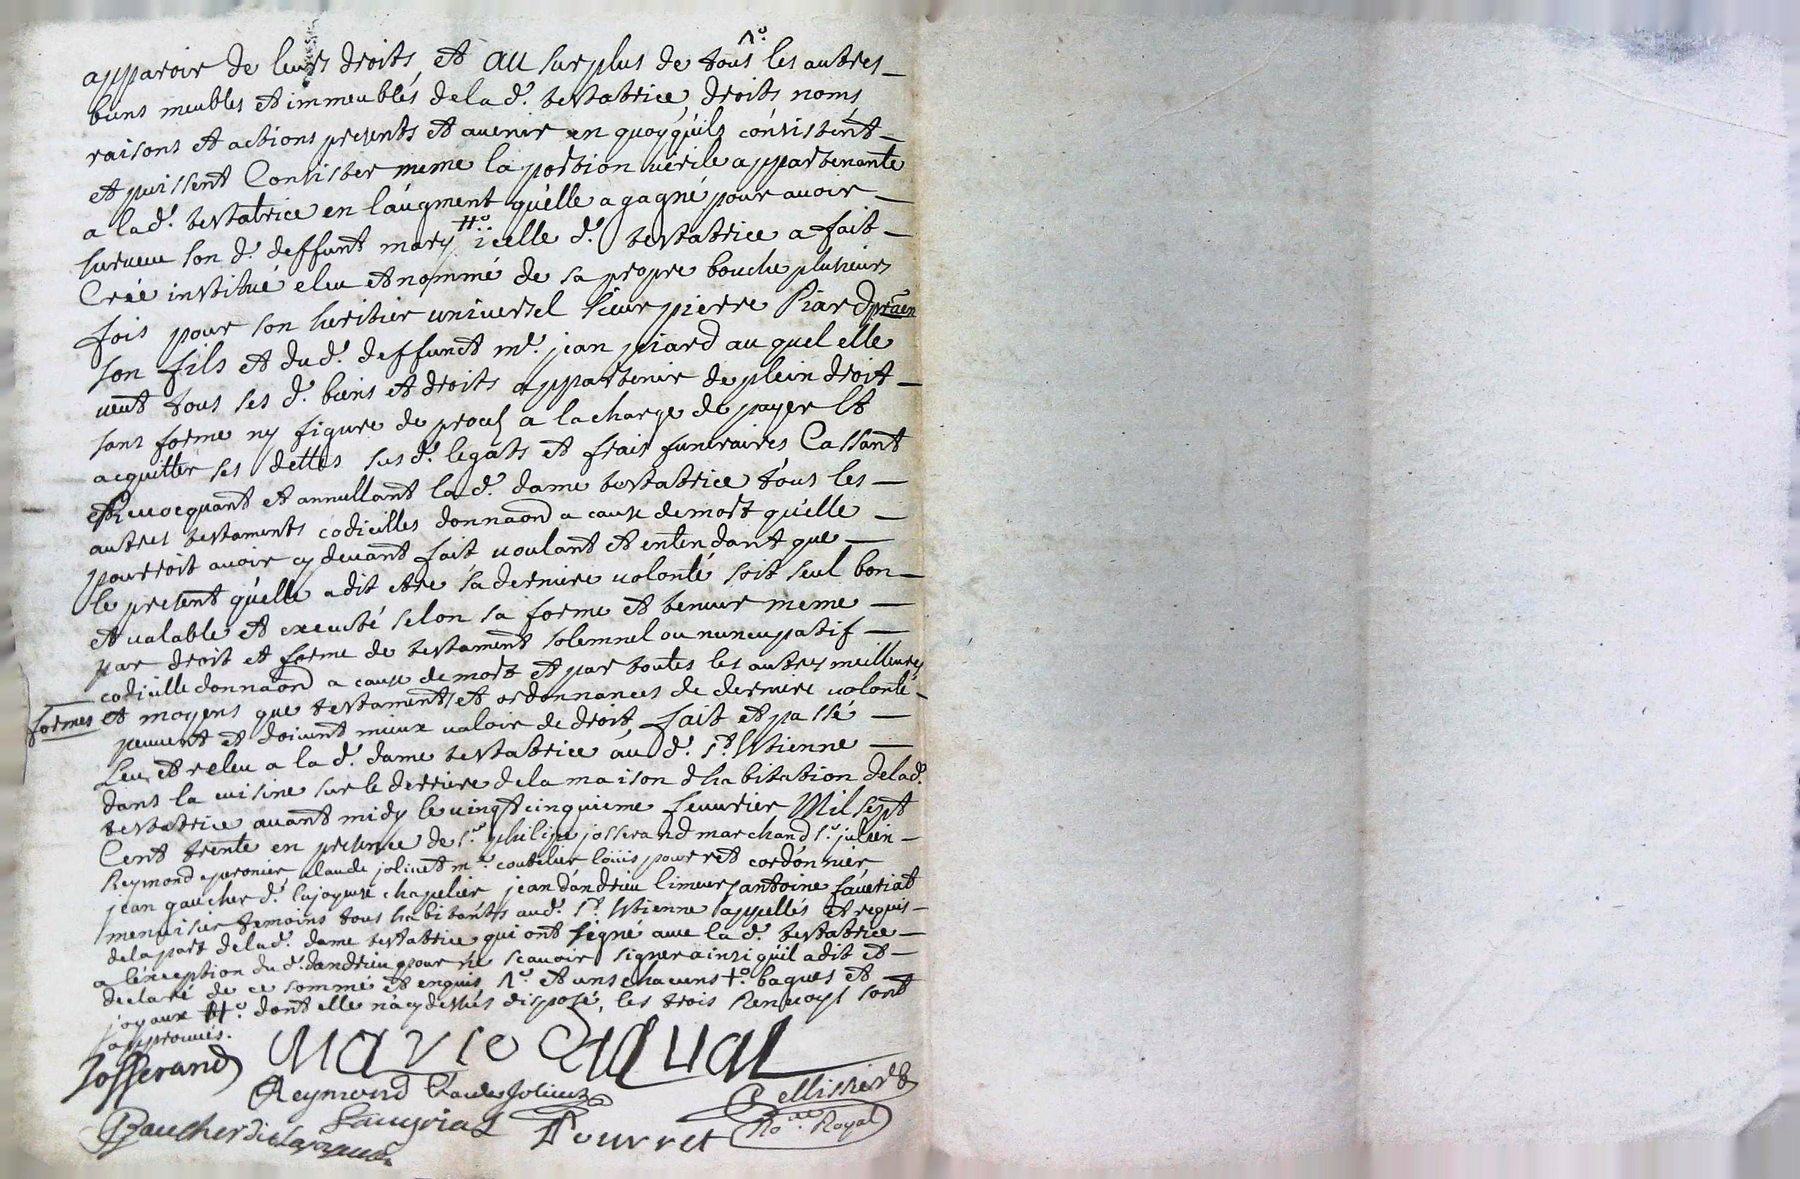 apparoir de leurs droits, et au surplus de tous ^1° les autres
biens meubles et immeubles de la d.e testatrice, droits noms
raisons et actions presents et avenir en quoy qu'ils consistent
et puissent Consister meme la portion virile appartenante
a la d.e testatrice en l'augment qu'elle a gagné pour avoir
survecu son d.t deffunt mary #° icelle d.e testatrice a fait
Créé institué eleu et nommé de sa propre bouche plusieurs
fois pour son heritier universel sieur pierre Piard
son fils et du d.t deffunct m.e jean piard au quel elle
veut tous ses d.ts biens et droits appartenir de plein droit
sans forme ny figure de procés a la charge de payer et
acquitter ses dettes sus d.ts legats et frais funeraires Cassant
et Revocquant et annullant la d.e dame testatrice tous les
autres testaments codicilles donnaon a cause de mort qu'elle
pourroit avoir cy devant fait voulant et entendant que
le present qu'elle a dit etre sa derniere volonté soit seul bon
et valable et executé selon sa forme et teneur meme
par droit et forme de testament solemnel ou nuncupatif
codicille donnaon a cause de mort et par toutes les autres meilleures
formes et moyens que testaments et ordonnances de derniere volonté
peuvent et doivent mieux valoir de droit, fait et passé
Leu et releu a la d.e dame testatrice au d.t s.t Etienne
dans la cuisine sur le derriere de la maison d'habitation de la d.e
testatrice avant midy le vingt cinquieme fevvrier Mil sept
Cent trente en presence de s.r philipe josserand marchand s.r julien
Reymond claude jolivet m.e coutelier louis pourret cordonnier
jean gaucher d.t lajoyeuse chapelier jean dandrieu limeur antoine fauvriat
menuisier temoins tous habitants aud.t s.t Etienne appellés et requis
de la part de la d.e dame testatrice qui ont signé avec la d.e testatrice
a l'exception du d.t dandrieu pour ne scavoir signer ainsi qu'il a dit et
declaré de ce sommé et enquis, 1° et uns chacuns +° bagues et
joyaux #° dont elle n'a cy dessus disposé, les trois Renvoys sont
approuvés.
Josserand Marie
Reymond Claude Jolivet Pellissier
Gaucher dit lajoyeuse fauvriat Pourret No.re Royal